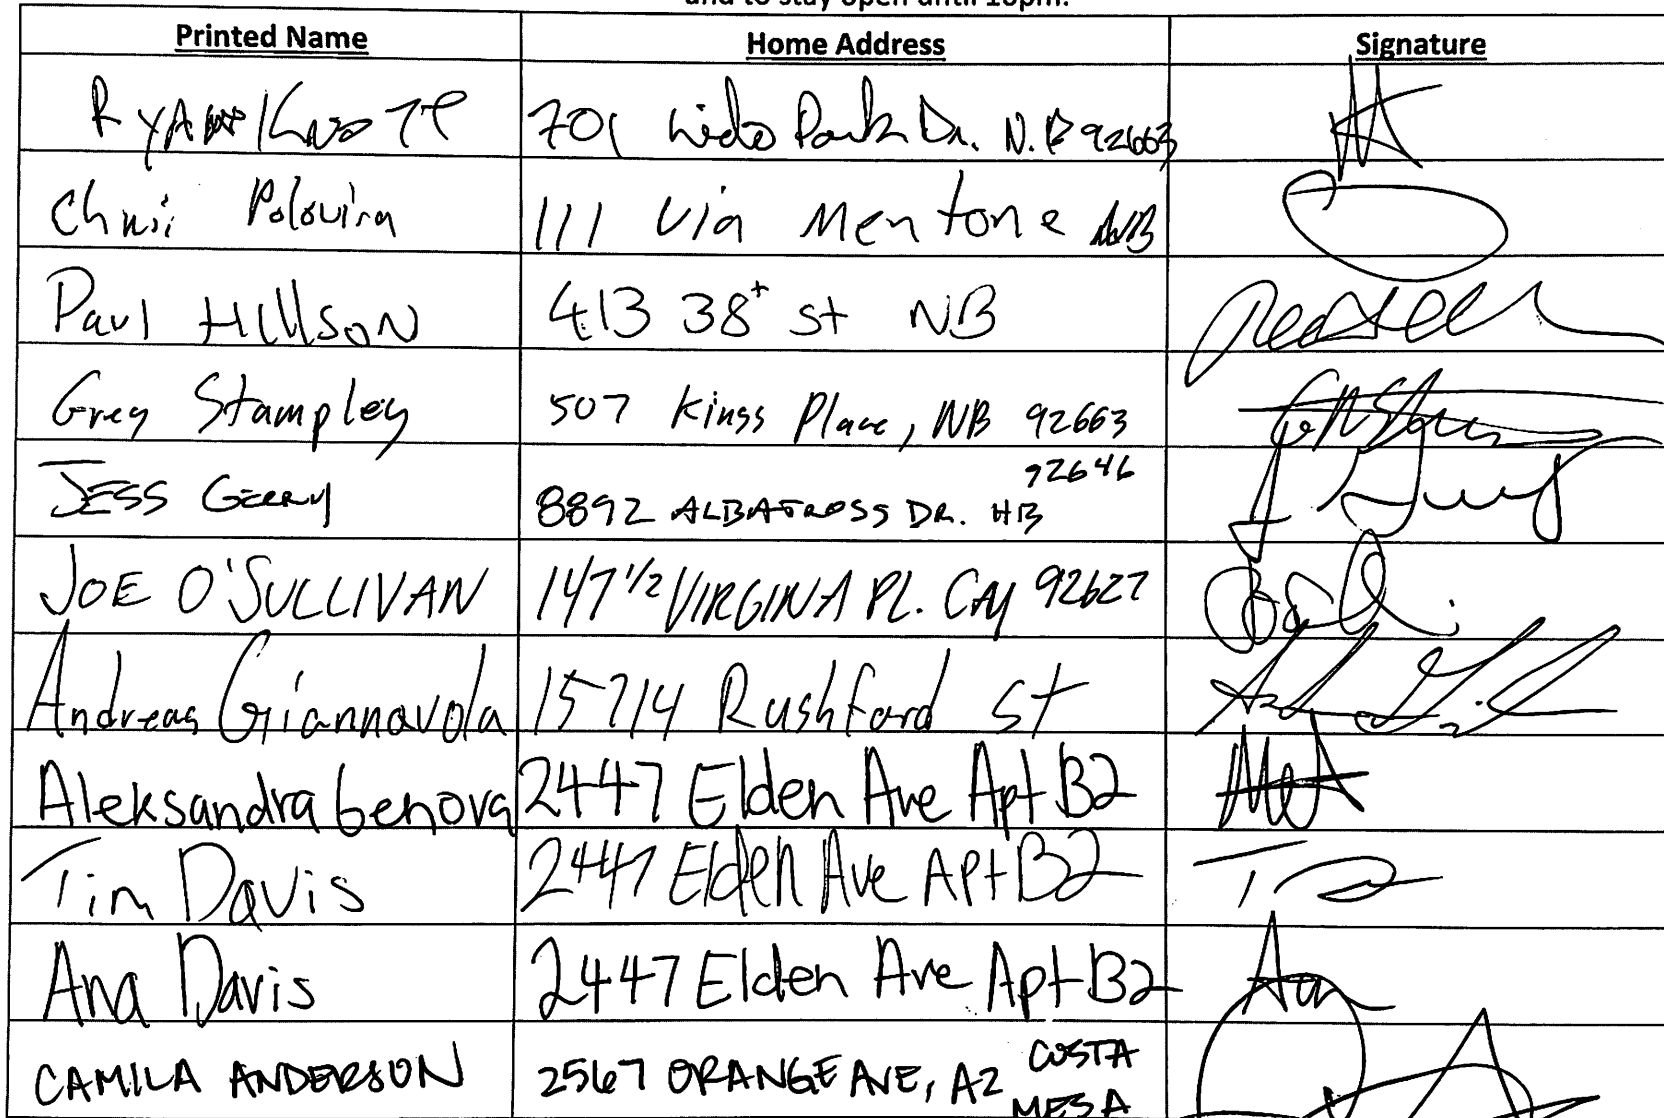 and to stay open until 10pm.
Printed Name Home Address Signature
Ryan Knott 701 Lido Park Dr. N.B 92663
Chris Polovina 111 Via Mentone NB
Paul Hillson 413 38+ st NB
Greg Stampley 507 Kings Place, NB 92663
JESS GERRY 8892 ALBATROSS DR. HB 92646
JOE O'SULLIVAN 147 1/2 VIRGINIA PL. CM 92627
Andreas Giannavola 15714 Rushford St
Aleksandra Genova 2447 Elden Ave Apt B2
Tim Davis 2447 Elden Ave Apt B2
Ana Davis 2447 Elden Ave Apt B2 Ana
CAMILA ANDERSON 2567 ORANGE AVE, A2 COSTA
MESA